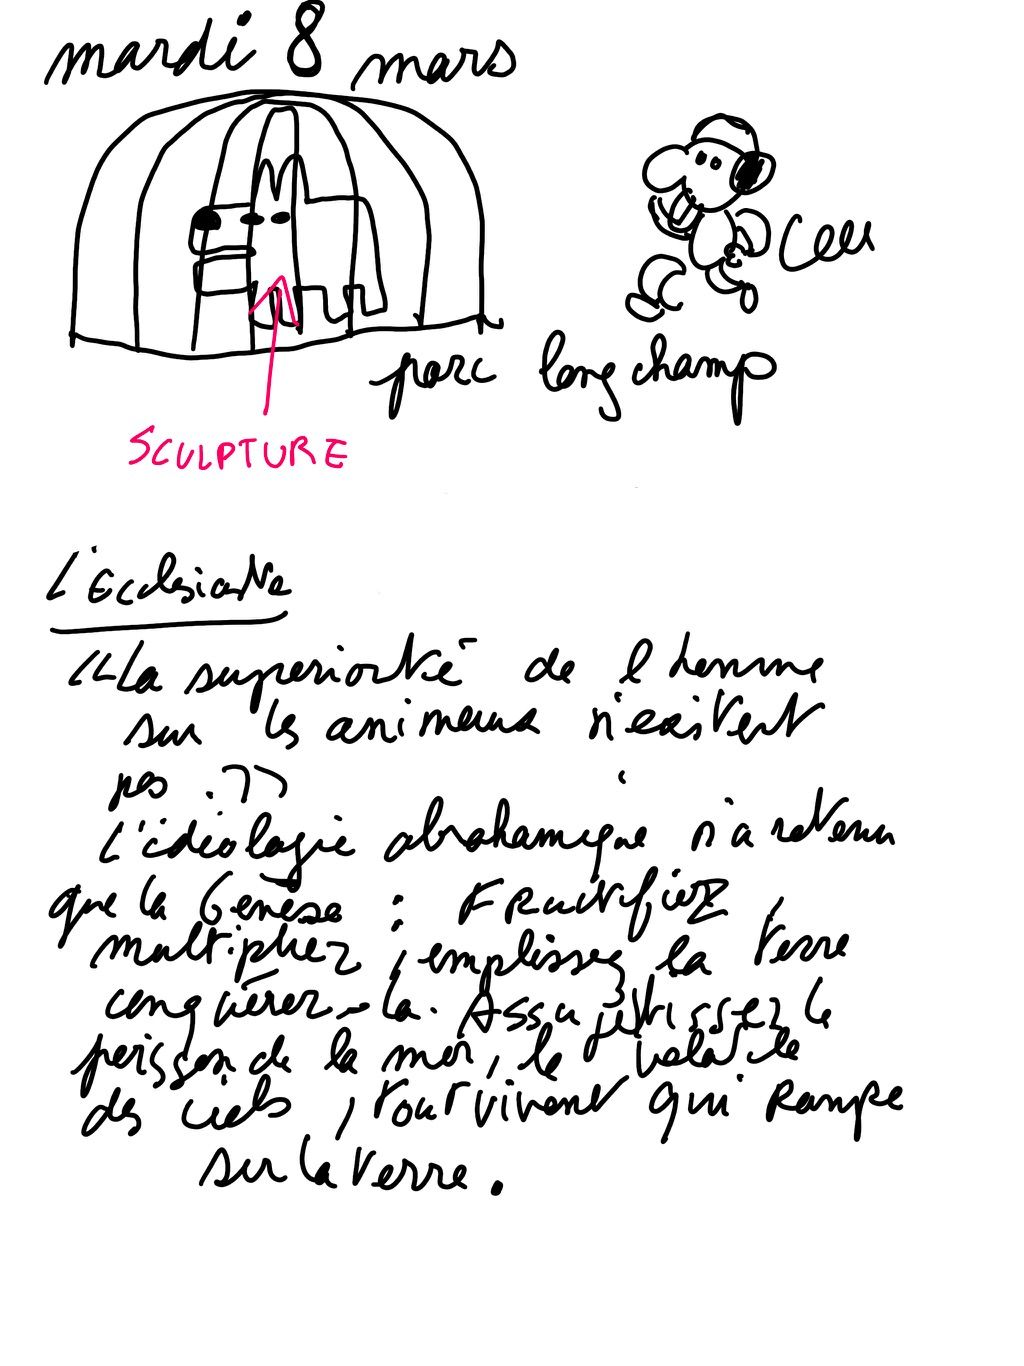 mardi 8 mars
parc longchamp
SCULPTURE
L'Ecclesiaste
"La superiorité de l homme
sur les animaux n'existent
pas."
L'idéologie abrahamique n'a retenu
que la Genèse : Fructifiez,
multipliez, emplissez la terre
conquérez-la. Assujettissez le
poisson de la mer, le volatile
des ciels, tout vivant qui rampe
sur la terre.